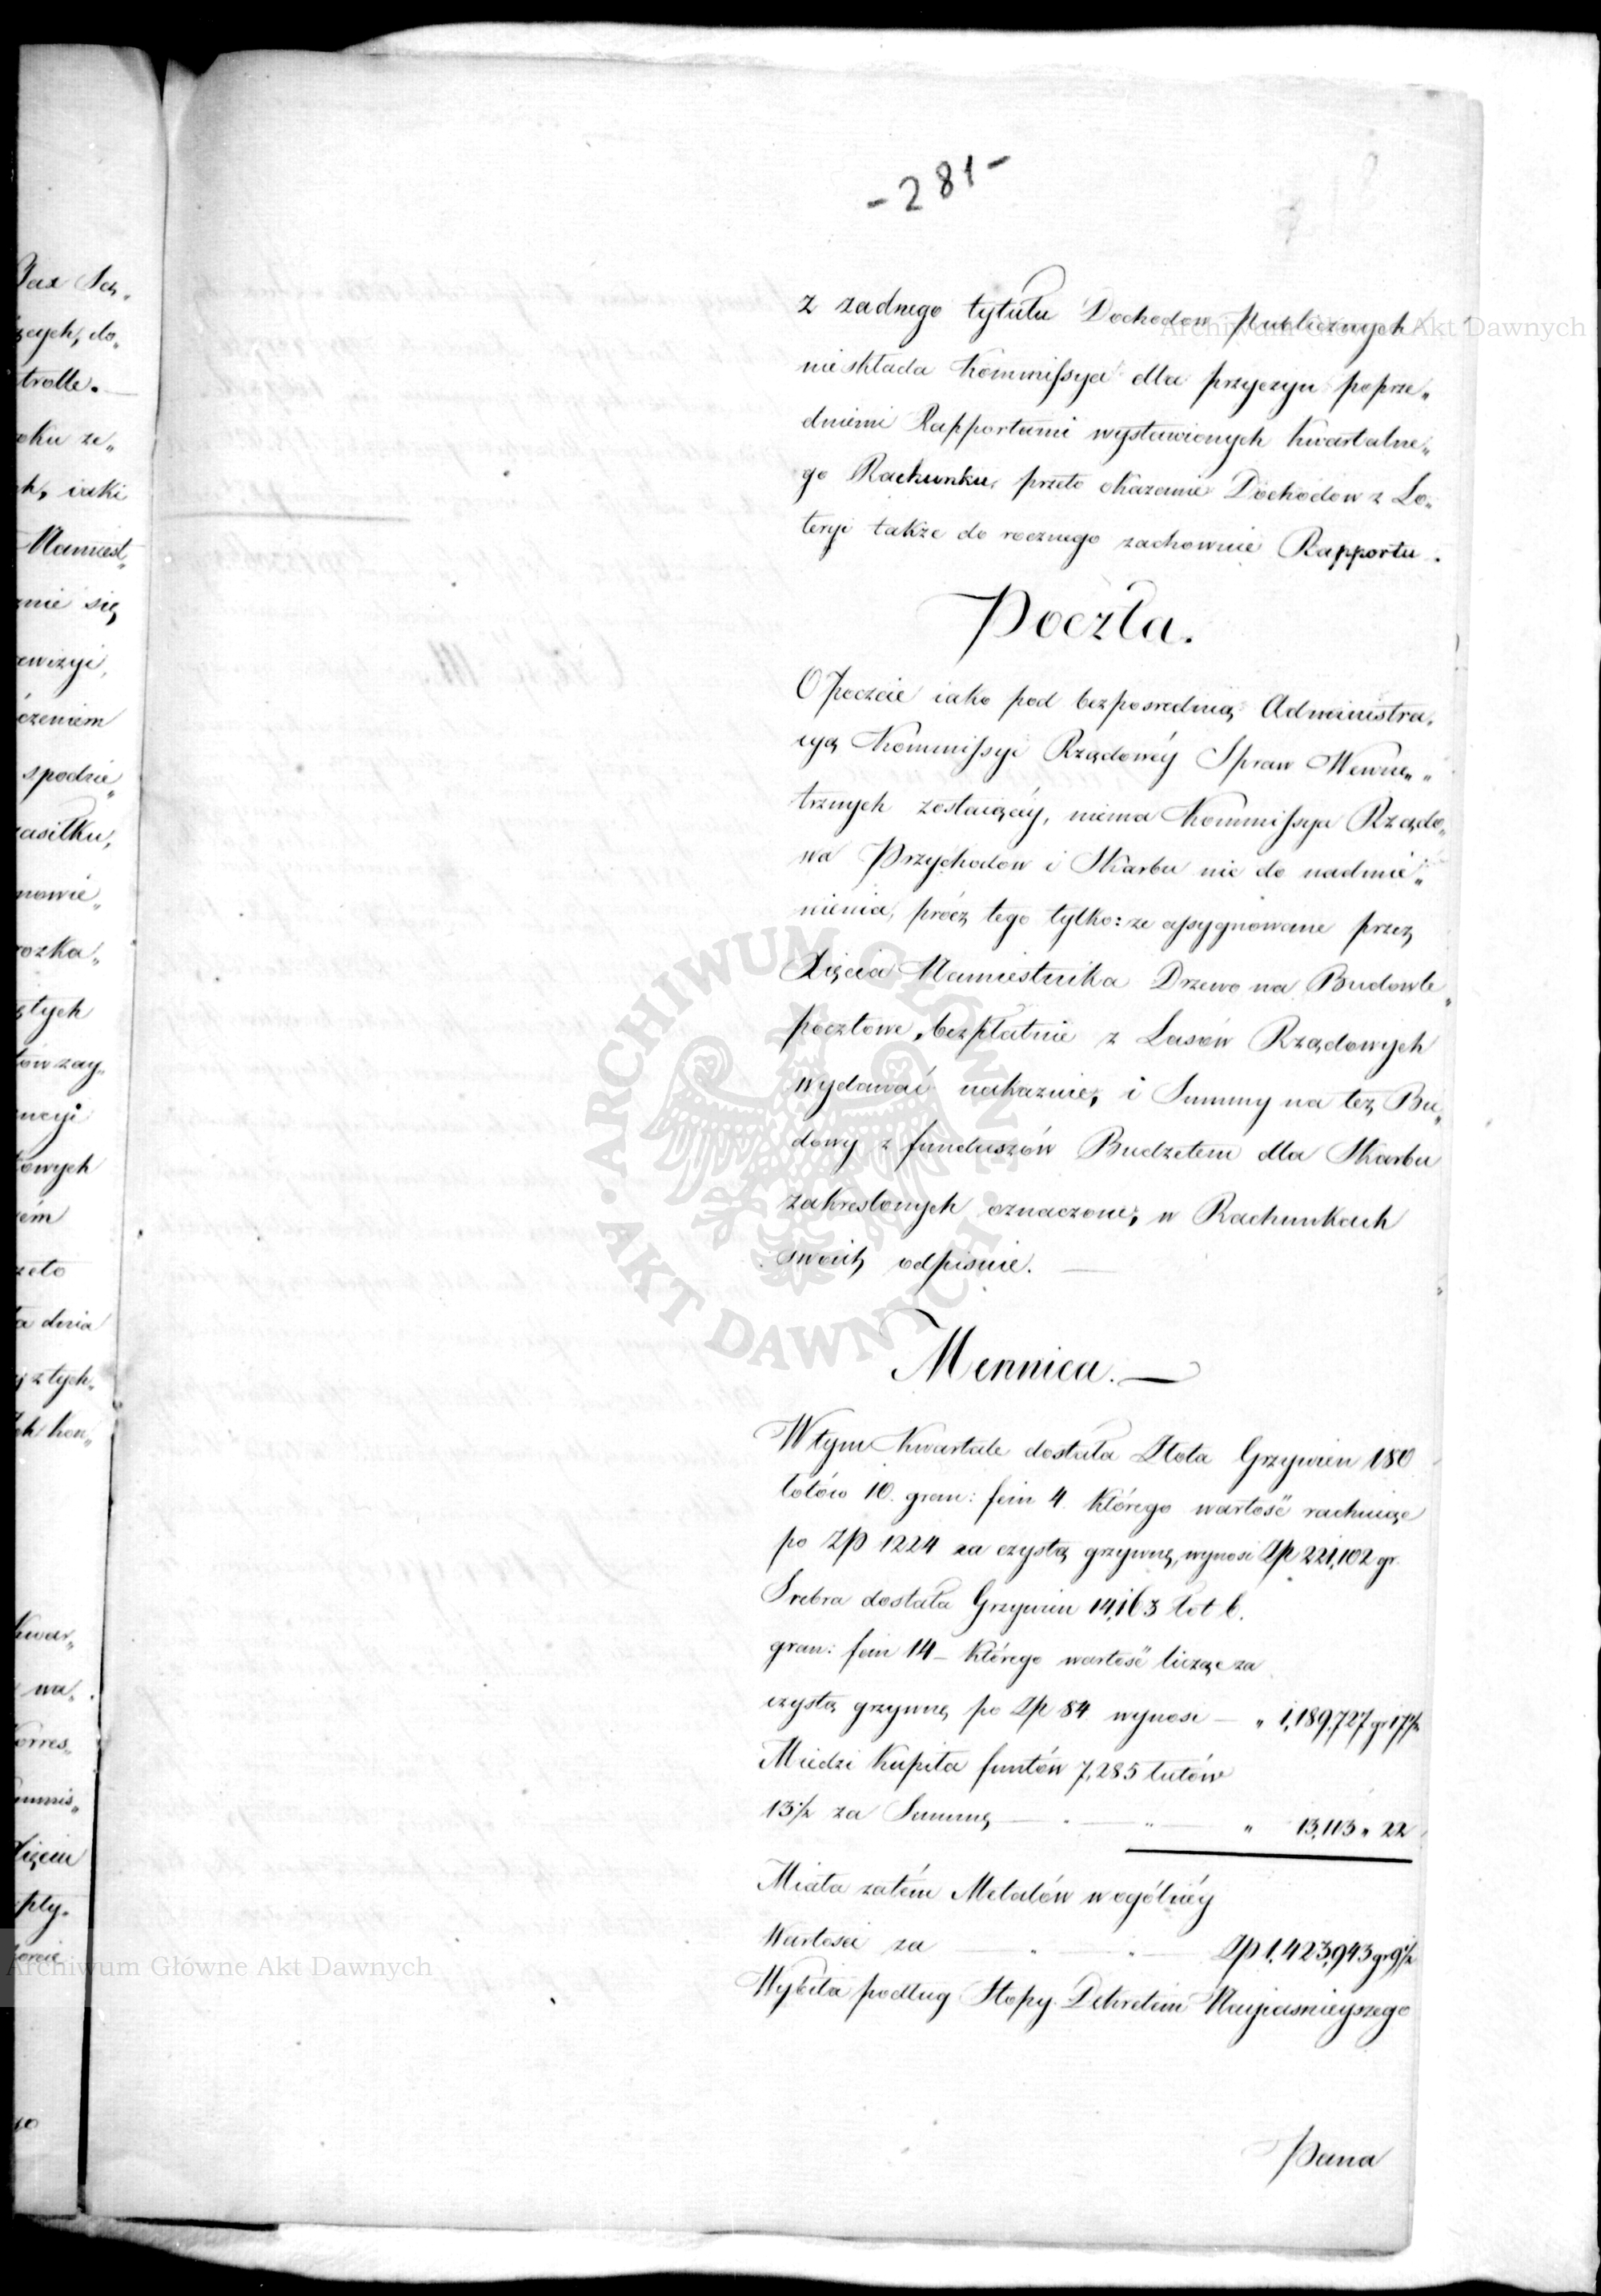 -281-
z zadnego tytułu Dochodow publicznych
nieskłada Kommissya dla przyczyn poprze„
dniemi Rapportami wystawionych kwartalne„
go Rachunku, przeto okazanie Dochodow z Lo„
teryi takze do rocznego zachownie Rapportu.
Poczta.
O Poczcie iako pod bezposrednią Administra„
cyą Kommissyi Rządowéy Spraw Wewnę„
trznych zostaiącéy, niema Kommissya Rządo„
wa Przychodow i Skarbu nic do nadmie„
nienia, prócz tego tylko: ze assygnowane przez
Xięcia Namiestnika Drzewo na Budowle
pocztowe, bezpłatnie z Lasów Rządowych
wydawać nakaznie, i Summy na też Bu„
dowy z funduszów Budzetem dla Skarbu
zakreslonych oznaczone, w Rachunkach
swoich odpisuie.
Mennica.
W tym Kwartale dostała Złota Grzywien 180
łotów 10. gran: fein 4 którego wartość rachuiąc
po Zp 1224 za czystą grzywnę, wynosi Zp 221,102 gr.
Srebra dostała Grzywien 14,163 łot 6.
gran: fein 14 – którego wartość licząc za
czystą grzywnę po Zp 84 wynosi — „ 1,189,727 gr 17½
Miedzi kupiła funtów 7,285 łutów
13½ za Summę — „ — „ 13,113 „ 22
Miała zatém Metalów w ogólnéy
Wartosci za — Zp 1,423,943 gr 9½
Wybiła podług Stopy Dekretem Nayiasnieyszego
Pana
Archiwum Główne Akt Dawnych
ARCHIWUM GŁÓWNE AKT DAWNYCH
Archiwum Główne Akt Dawnych